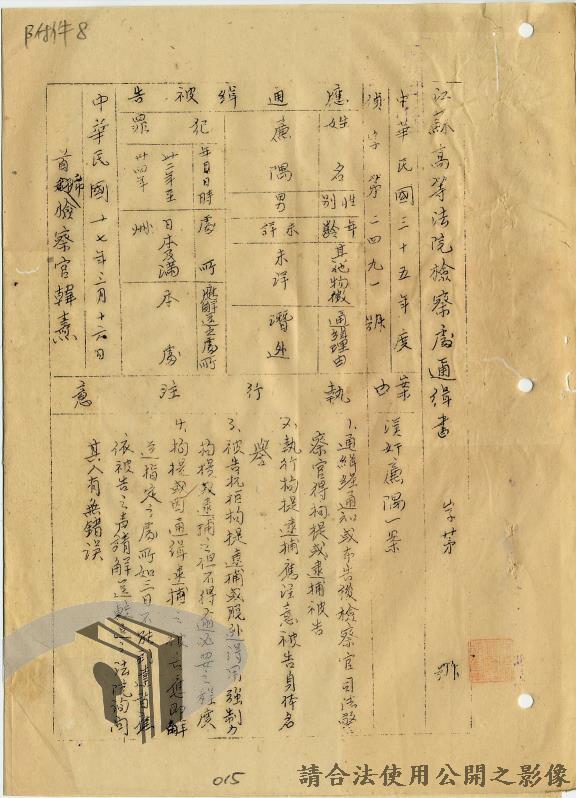 附件8
江蘇高等法院檢察處通緝書 字第 號
中華民國三十五年度
偵字第二四九一號
案由 漢奸廉隅一案
應通緝被告
姓名 廉隅
性別 男
年齡 未詳
其他物徵 未詳
通緝理由 潛逃
犯罪
年月日時 廿 年至卅四年
處所 日本及滿洲
應解送之處所 本處
執行注意
1、通緝經通知或布告後檢察官司法警
察官得拘提或逮捕被告
2、執行拘提逮捕應注意被告身体名
譽
3、被告抗拒拘提逮捕或脫逃得用強制力
拘提或逮捕之但不得逾必要之程度
4、拘提或因通緝逮捕之被告應即解
送指定之處所如三日不能到達
依被告之声請解送較近之法院詢問
其人有無錯誤
中華民國 十七年三月十六日
首席檢察官韓燾
015
請合法使用公開之影像